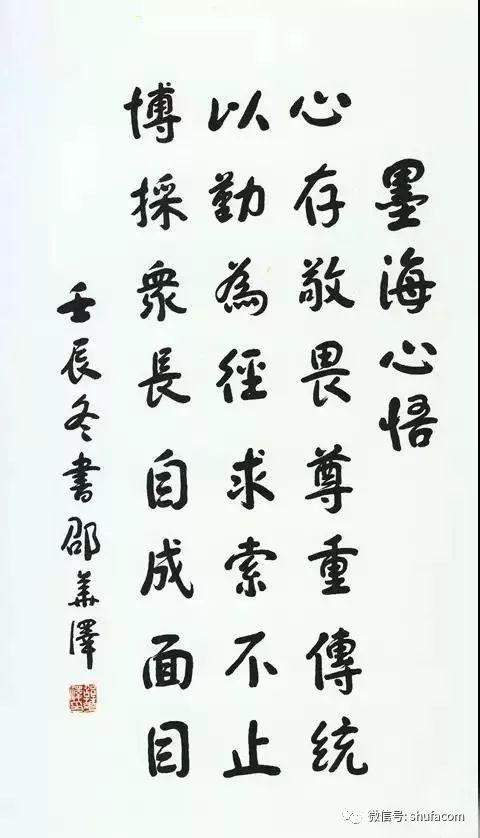 墨海心悟
心存敬畏尊重傳統
以勤為徑求索不止
博採衆長自成面目
壬辰冬書邵華澤
微信号: shufacom